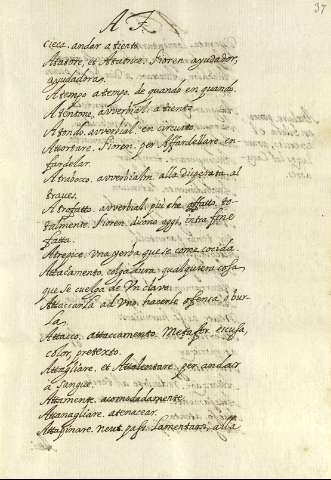 37
A T.
cieca. andar a tiento.
Atatore, et Atatrice. Fioren. ayudador,
ayudadora.
A tempo a tempo. de quando en quando.
A tentone, avverbial. a tiento.
A tondo. avverbial. en circuito.
Attortare. Fioren. per Affardellare. en
fardelar.
A trabocco. avverbialm. alla disperata. al
traves.
A trofatto. avverbial. più che affatto, to
talmente. Fioren. dicono aggi, intra fine
fatta.
Atrepice. una yerba que se come cocida.
Attacamento. colgadura. qualquiera cosa
que se cuelga de Un clavo.
Attaccarla ad Uno. hacerle offensa, o bur
la.
Attacco. attaccamento. Metafor. escusa,
color, pretexto.
Attagliare, et Attalentare. per andar
a sangue.
Attamente. acomodadamente.
Attanagliare. atenacear.
Attapinare. neut. pass. lamentarsi, alla